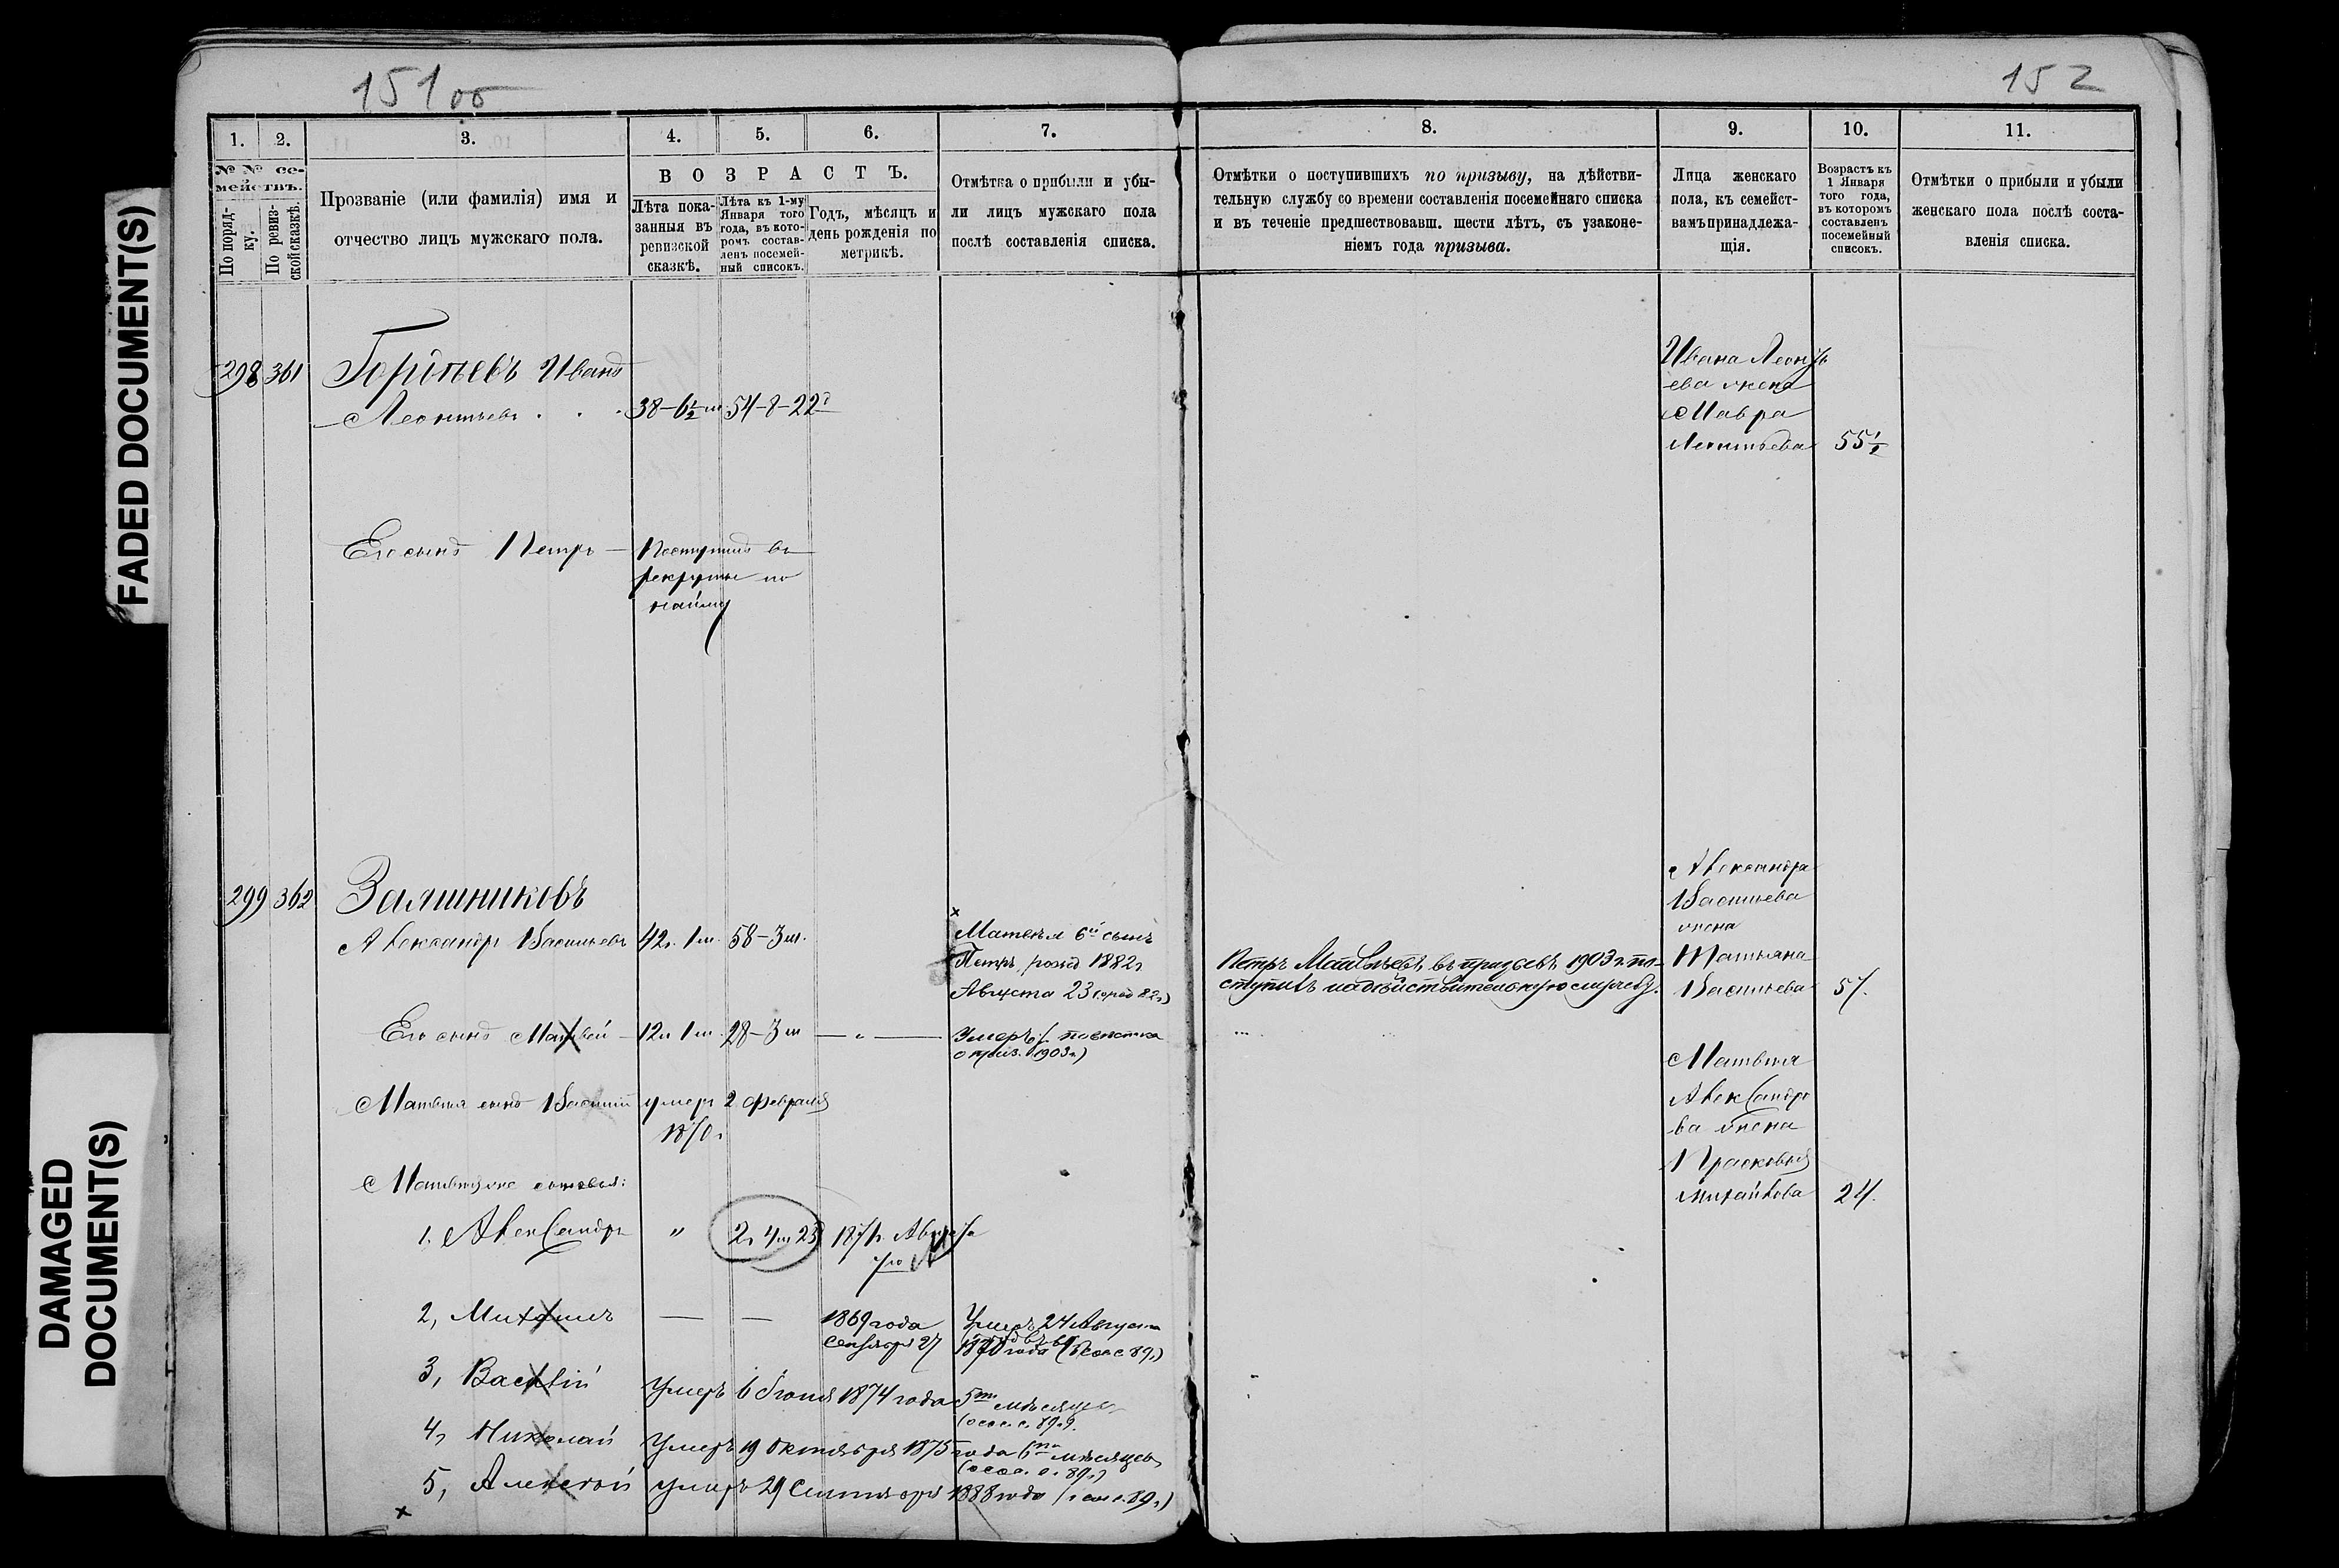 FADED DOCUMENT(S)
DAMAGED
DOCUMENT(S)
151 об
152
1.
2.
3.
4.
5.
6.
7.
8.
9.
10.
11.
№ № се-
мействъ.
По поряд-
ку.
По ревиз-
ской сказкѣ.
Прозваніе (или фамилія) имя и
отчество лицъ мужскаго пола.
ВОЗРАСТЪ.
Лѣта пока-
занныя въ
ревизской
сказкѣ.
Лѣта къ 1-му
Января того
года, въ кото-
ромъ состав-
ленъ посемей-
ный списокъ.
Годъ, мѣсяцъ и
день рожденія по
метрикѣ.
Отмѣтка о прибыли и убы-
ли лицъ мужскаго пола
послѣ составленія списка.
Отмѣтки о поступившихъ по призыву, на дѣйстви-
тельную службу со времени составленія посемейнаго списка
и въ теченіе предшествовавш. шести лѣтъ, съ узаконе-
ніемъ года призыва.
Лица женскаго
пола, къ семейст-
вамъ принадлежа-
щія.
Возрастъ къ
1 Января
того года,
въ которомъ
составленъ
посемейный
списокъ.
Отмѣтки о прибыли и убыли
женскаго пола послѣ соста-
вленія списка.
298 361 Иванъ
Леонтьевъ 38-6½ м 54-8-22
Ивана Леонть
ева жена
Мавра
Леонтьева 55½
Его сынъ Петръ — Поступилъ въ
рекруты по
найму
299 362
Александръ Васильевъ 42г. 1м. 58-3м.
Матвѣя 6й сынъ
Петръ, рожд 1882г
Августа 23
Петръ Матвѣевъ, въ призывъ 1903 г. по-
ступилъ на дѣйствительную службу.
Александра
Васильева
жена
Татьяна
Васильева 57.
Его сынъ Матвѣй — 12л 1м. 28-3м — „ —
Умеръ (повѣстка
о приз. 1903г.)
Матвѣя сынъ Василій умеръ 2 февраля
1870г.
Матвѣя
Александро
ва жена
Прасковья
Михайлова 24.
Матвѣя же сыновья:
1, Александръ „ 2г 4м 23 1871г. Августа
2, Михаилъ — — 1869 года
Сентября 27
Умеръ 24 Августа
3, Василій Умеръ 6 Іюня 1874 года 5ти мѣсяцевъ
4, Николай Умеръ 19 Октября 1875 года 6ти мѣсяцевъ
5, Алексѣй умеръ 29 Сентября 1888 года